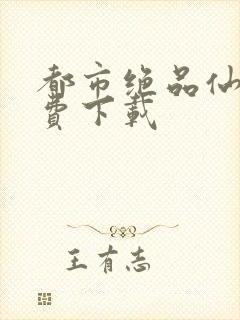 都市绝品仙
費下載
王有志